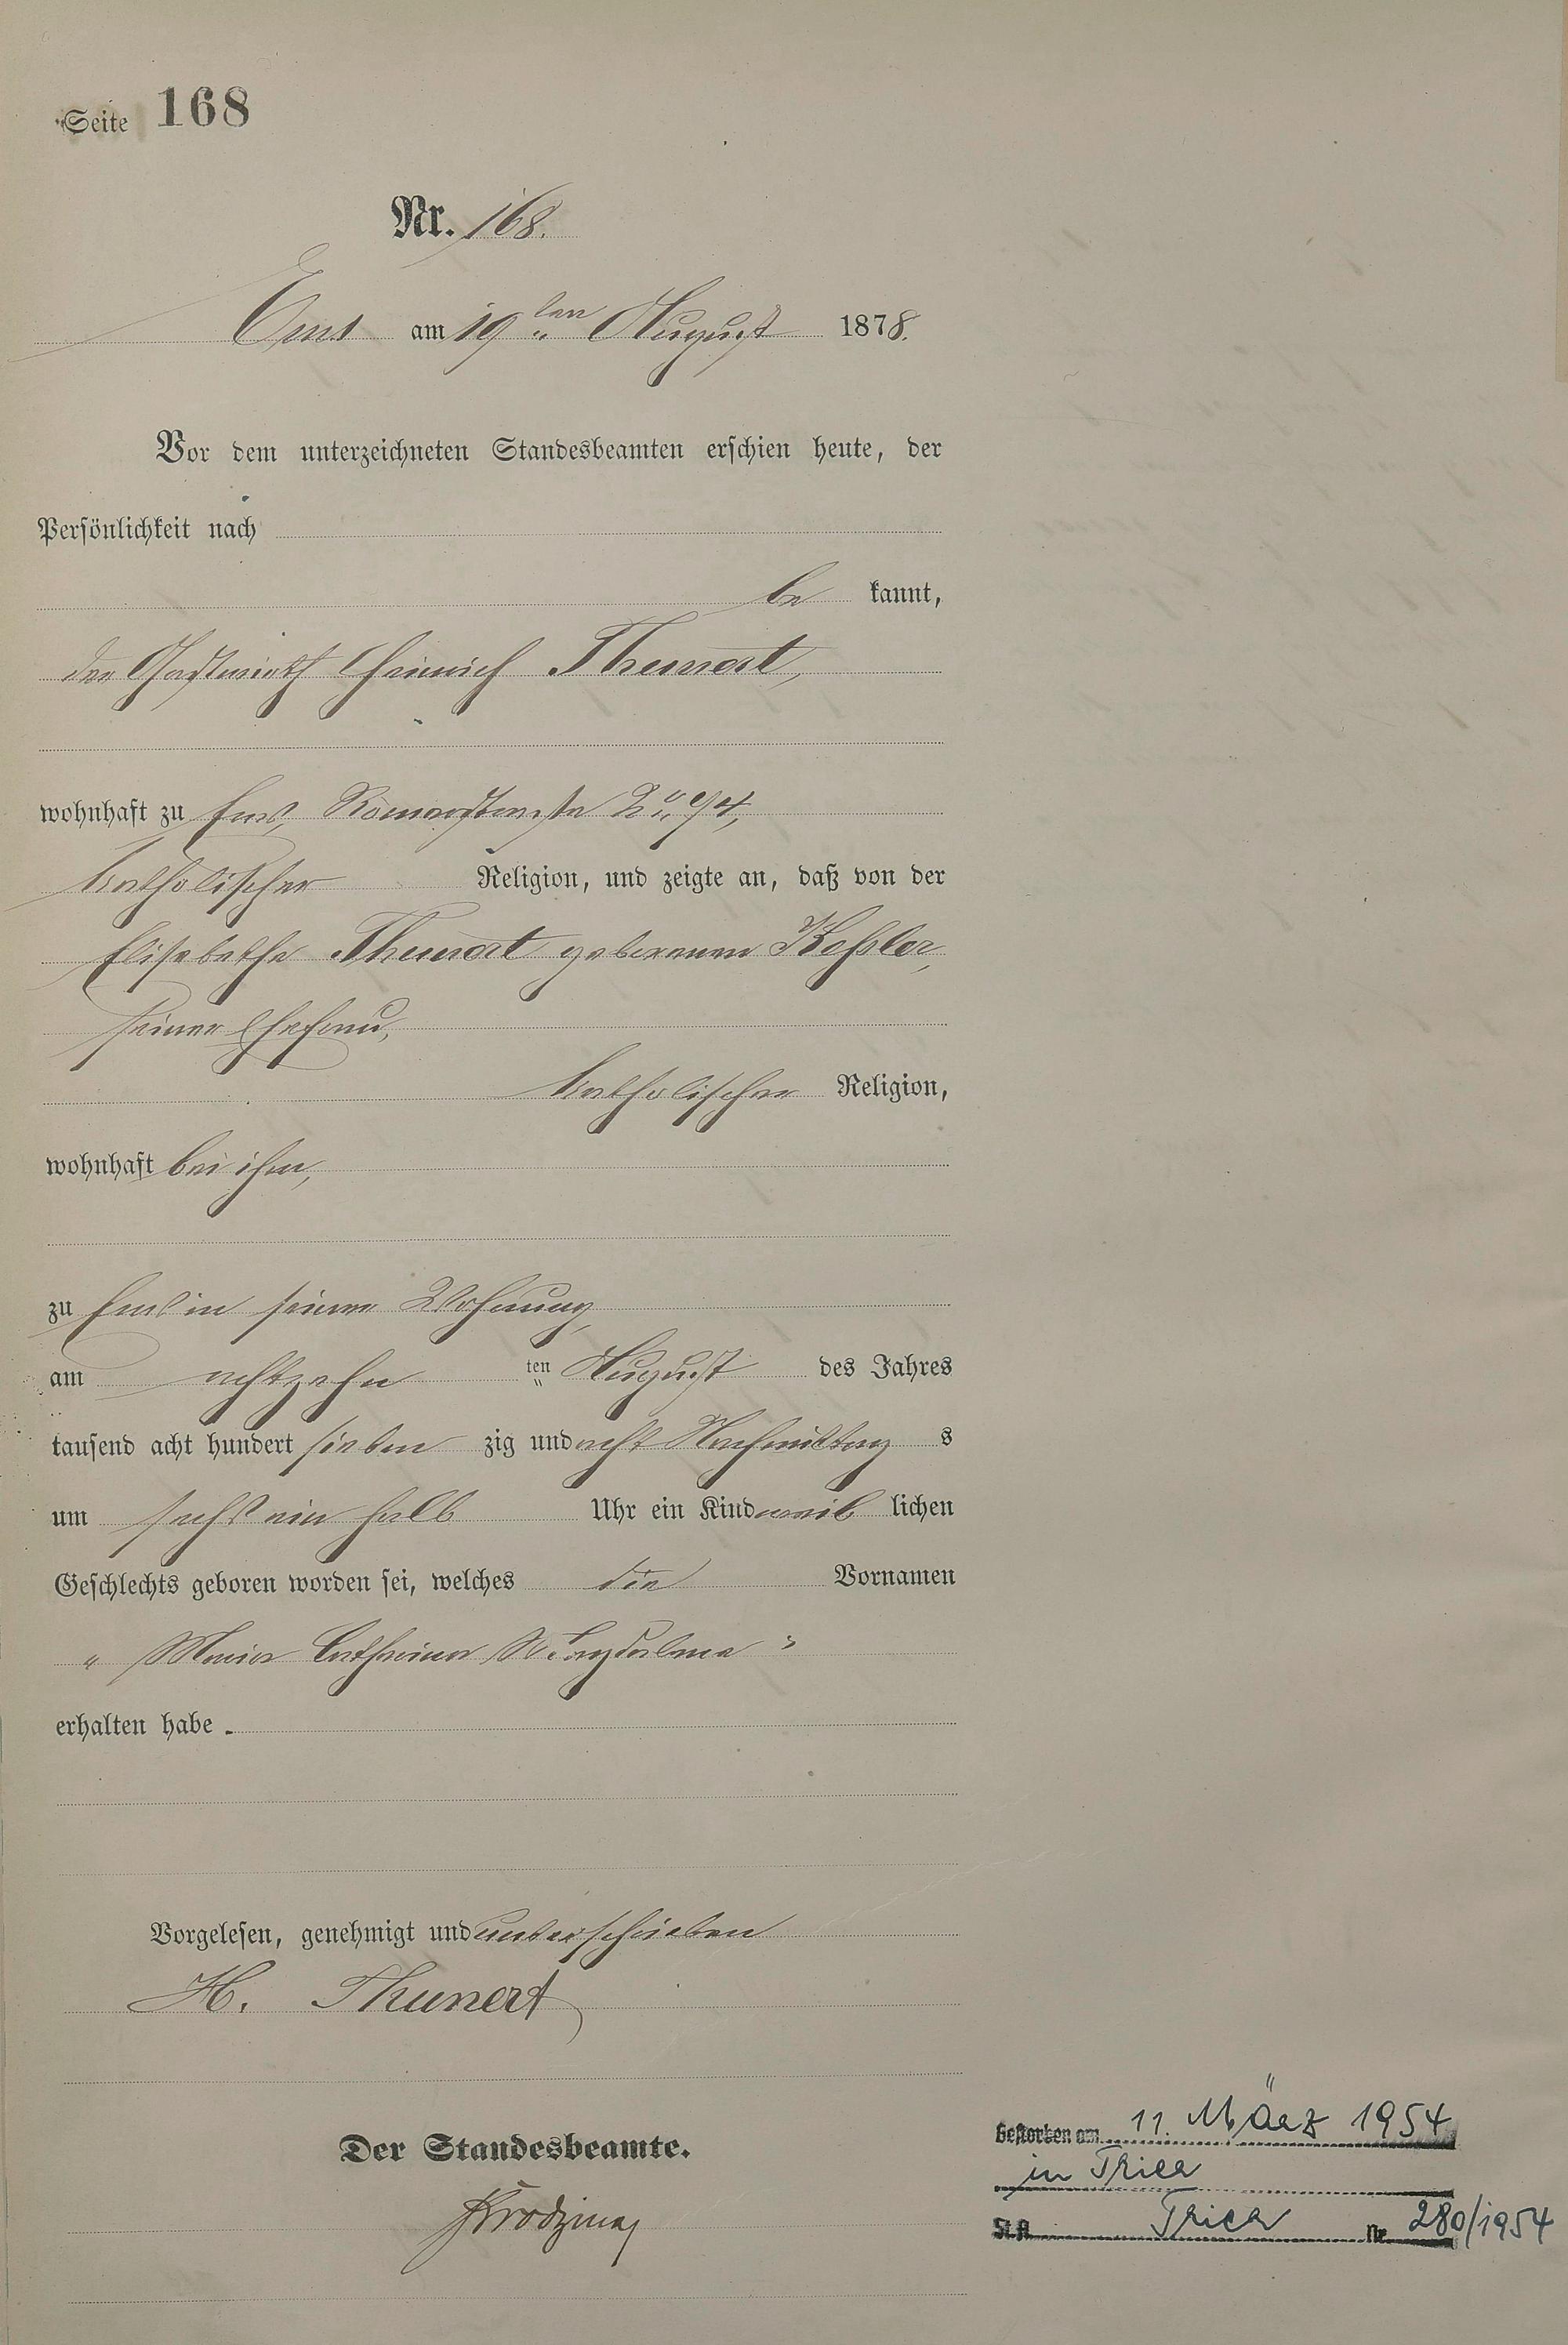 Seite 168
Nr. 168.
Ems am 19ten August 1878.
Vor dem unterzeichneten Standesbeamten erschien heute, der
Persönlichkeit nach
be kannt,
der Gastwirth Heinrich Thunert,
wohnhaft zu Ems, Römerstraße
katholischer Religion, und zeigte an, daß von der
Elisabetha Thunert geborenen Keßler,
seiner Ehefrau,
katholischer Religion,
wohnhaft bei ihm,
zu Ems in seiner Wohnung,
am achtzehn ten August des Jahres
tausend acht hundert sieben zig und acht Nachmittag s
um sechs ein halb Uhr ein Kind weib lichen
Geschlechts geboren worden sei, welches die Vornamen
„ Maria Catharina Magdalena "
erhalten habe.
Vorgelesen, genehmigt und unterschrieben
H. Thunert
Der Standesbeamte.
Gestorben am 11. März 1954
in Trier
St.A. Trier Nr. 280/1954